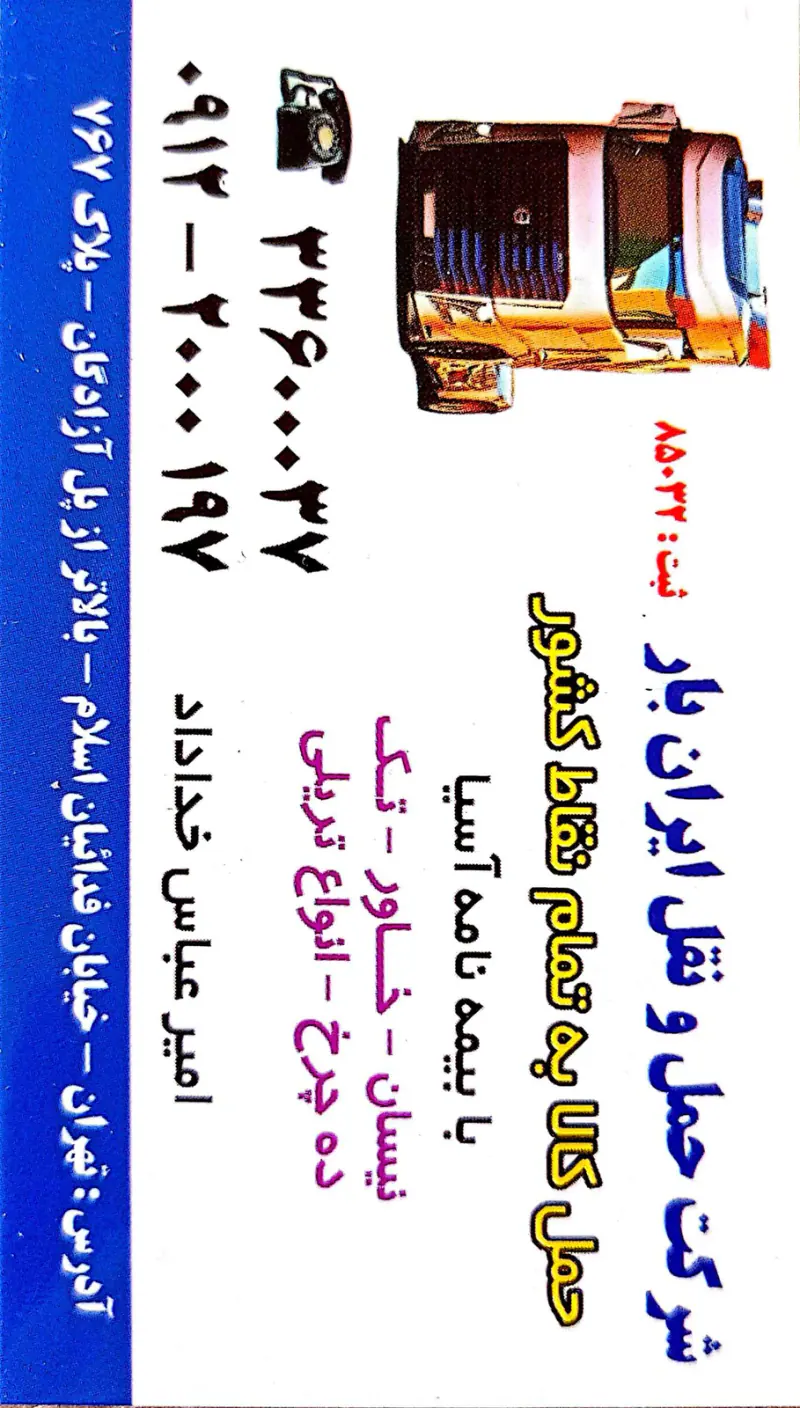 شرکت حمل و نقل ایران بار
ثبت : ۸۵۰۳۲
حمل کالا به تمام نقاط کشور
با بیمه نامه آسیا
نیسان - خاور - تک
ده چرخ - انواع تریلی
۳۳۶۰۰۰۳۷
امیر عباس خداداد
۰۹۱۲ - ۲۰۰۰ ۱۹۷
آدرس : تهران - خیابان فدائیان اسلام - بالاتر از پل آزادگان - پلاک ۷۶۷